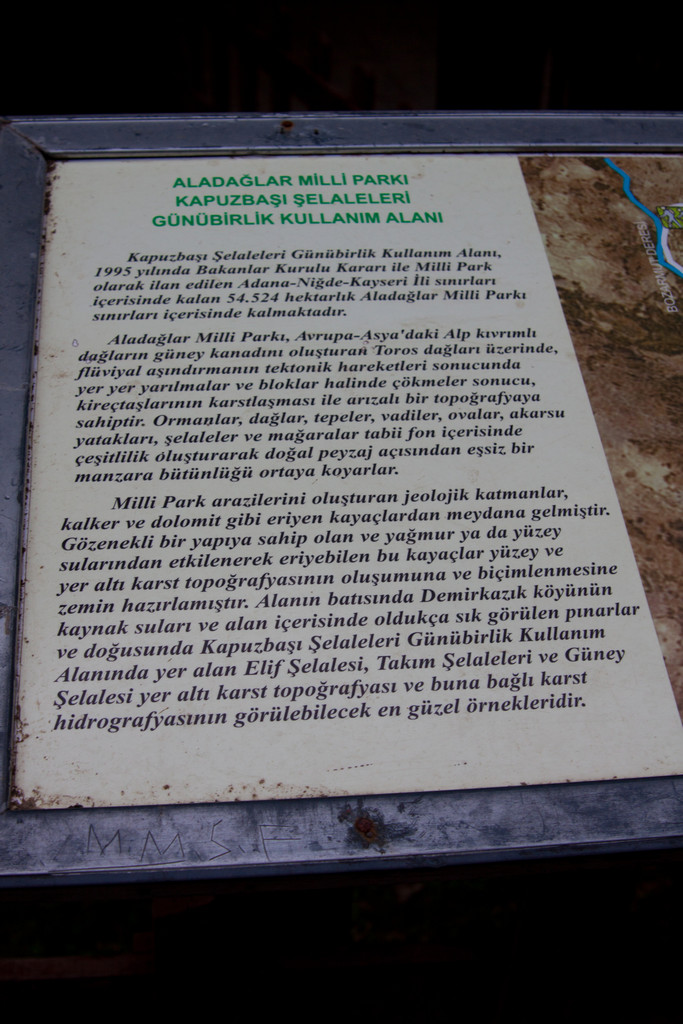 ALADAĞLAR MİLLİ PARKI
KAPUZBAŞI ŞELALELERİ
GÜNÜBİRLİK KULLANIM ALANI
Kapuzbaşı Şelaleleri Günübirlik Kullanım Alanı,
1995 yılında Bakanlar Kurulu Kararı ile Milli Park
olarak ilan edilen Adana-Niğde-Kayseri İli sınırları
içerisinde kalan 54.524 hektarlık Aladağlar Milli Parkı
sınırları içerisinde kalmaktadır.
Aladağlar Milli Parkı, Avrupa-Asya'daki Alp kıvrımlı
dağların güney kanadını oluşturan Toros dağları üzerinde,
flüviyal aşındırmanın tektonik hareketleri sonucunda
yer yer yarılmalar ve bloklar halinde çökmeler sonucu,
kireçtaşlarının karstlaşması ile arızalı bir topoğrafyaya
sahiptir. Ormanlar, dağlar, tepeler, vadiler, ovalar, akarsu
yatakları, şelaleler ve mağaralar tabii fon içerisinde
çeşitlilik oluşturarak doğal peyzaj açısından eşsiz bir
manzara bütünlüğü ortaya koyarlar.
Milli Park arazilerini oluşturan jeolojik katmanlar,
kalker ve dolomit gibi eriyen kayaçlardan meydana gelmiştir.
Gözenekli bir yapıya sahip olan ve yağmur ya da yüzey
sularından etkilenerek eriyebilen bu kayaçlar yüzey ve
yer altı karst topoğrafyasının oluşumuna ve biçimlenmesine
zemin hazırlamıştır. Alanın batısında Demirkazık köyünün
kaynak suları ve alan içerisinde oldukça sık görülen pınarlar
ve doğusunda Kapuzbaşı Şelaleleri Günübirlik Kullanım
Alanında yer alan Elif Şelalesi, Takım Şelaleleri ve Güney
Şelalesi yer altı karst topoğrafyası ve buna bağlı karst
hidrografyasının görülebilecek en güzel örnekleridir.
M.M.S.F